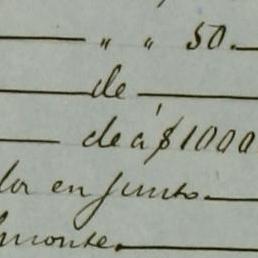 " " 50.
de
de á $1000
lor en junto.
lmonte.